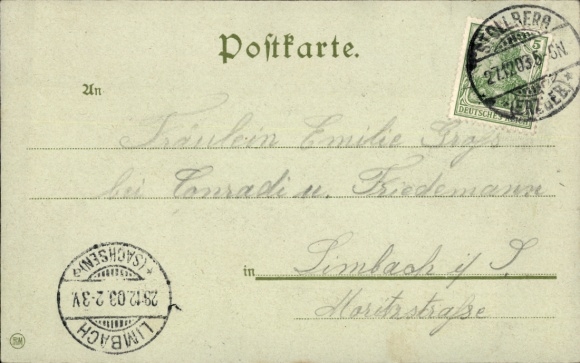 Postkarte.
An
Fräulein Emilie Groß
bei Conradi u. Friedemann
in Limbach i/S
Moritzstraße
STOLLBERG
27.12.03 5-6N
*(ERZGEB.)*
5
DEUTSCHES REICH
LIMBACH
29.12.03.2-3V.
*(SACHSEN)*